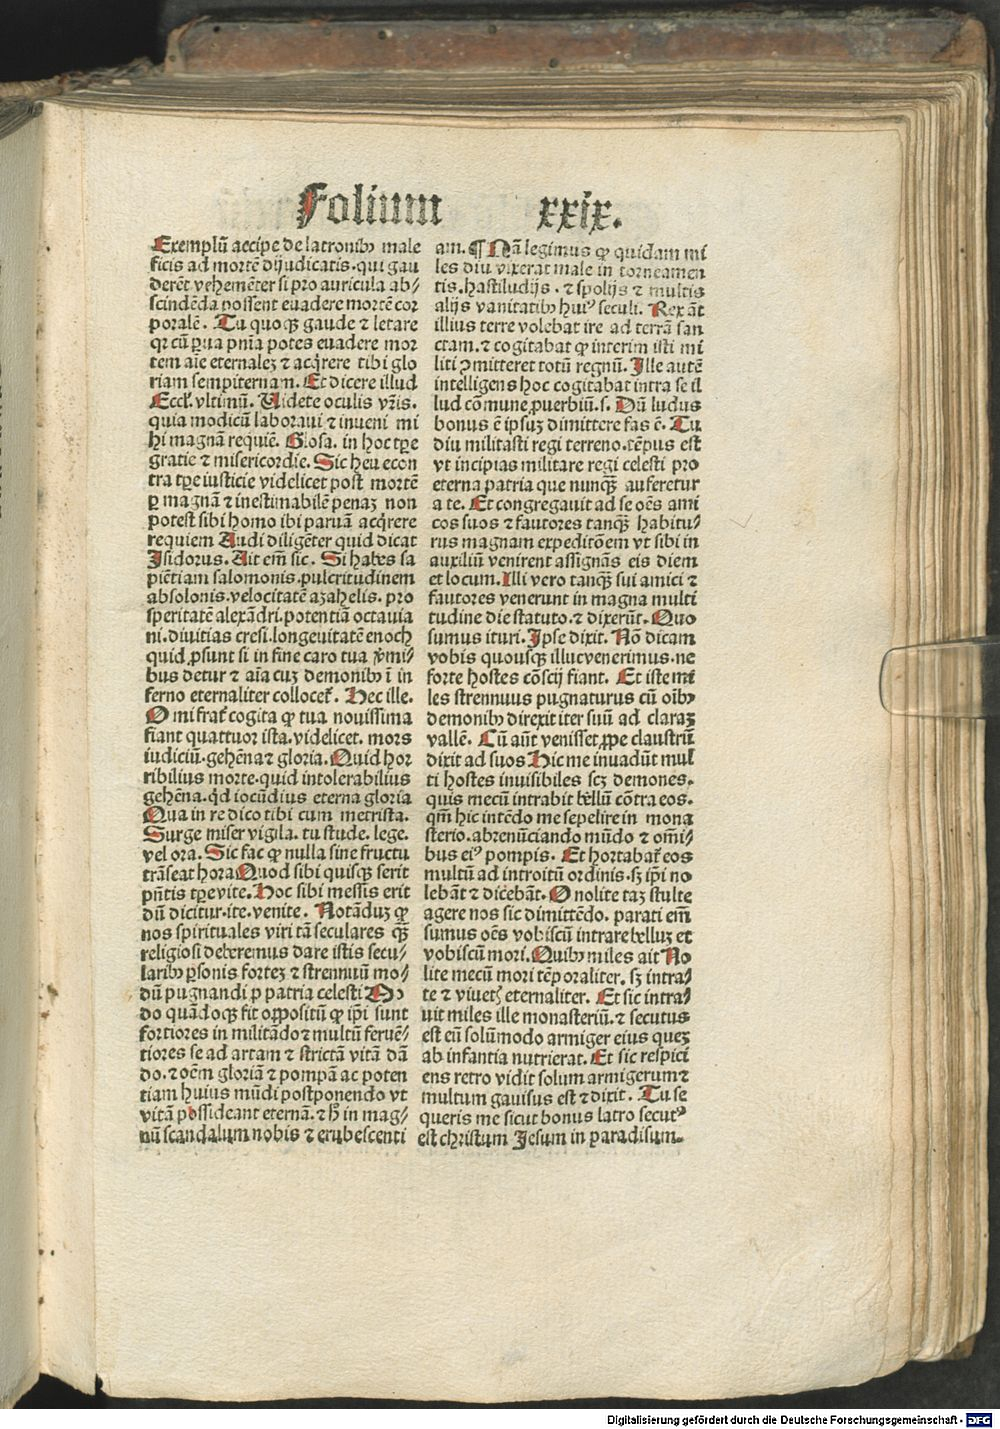 Folium xxix.
Exemplū accipe de latronibꝰ male
ficis ad mortē dijudicatis. qui gau
derēt vehemēter si pro auricula ab⸗
scindēda possent euadere mortē cor
poralē. Tu quoqꝫ gaude ⁊ letare
qꝛ cū ꝑua pn̄ia potes euadere mor
tem aīe eternalez ⁊ acq̄rere tibi glo
riam sempiternam. Et dicere illud
Eccꝉ. vltimū. Uidete oculis vr̄is.
quia modicū laboraui ⁊ inueni mi
hi magnā requiē. Glosa. in hoc tꝑe
gratie ⁊ misericordie. Sic heu econ
tra tꝑe iusticie videlicet post mortē
ꝑ magnā ⁊ inestimabilē penaꝫ non
potest sibi homo ibi paruā acq̄rere
requiem Audi diligēter quid dicat
Isidorus. Ait em̄ sic. Si habes sa
piētiam salomonis. pulcritudinem
absolonis. velocitatē azahelis. pro
speritatē alexādri. potentiā octauia
ni. diuitias cresi. longeuitatē enoch
quid ꝓsunt si in fine caro tua v̄mi⸗
bus detur ⁊ aīa cuꝫ demonibꝰ ī in
ferno eternaliter colloceꝉ. Hec ille.
O mi fraꝉ cogita qꝙ tua nouissima
fiant quattuor ista. videlicet. mors
iudiciū. gehēna ⁊ gloria. Quid hor
ribilius morte. quid intolerabilius
gehēna. qd̄ iocūdius eterna gloria
Qua in re dico tibi cum metrista.
Surge miser vigila. tu stude. lege.
vel ora. Sic fac ꝙ nulla sine fructu
trāseat hora Quod sibi quisqꝫ serit
pn̄tis tꝑe vite. Hoc sibi messis erit
dū dicitur. ite. venite. Notāduꝫ ꝙ
nos spirituales viri tā seculares qꝫ̄
religiosi deberemus dare istis secu⸗
laribꝰ ꝑsonis fortez ⁊ strennuū mo⸗
dū pugnandi ꝓ patria celesti Mo⸗
do quādoqꝫ fit oppositū ꝙ ip̄i sunt
fortiores in militādo ⁊ multū feruē⸗
tiores se ad artam ⁊ strictā vitā dā
do. ⁊ oēm gloriā ⁊ pompā ac poten
tiam huius mūdi postponendo vt
vitā possideant eternā. ⁊ h̄ in mag⸗
nū scandalum nobis ⁊ erubescenti
am. ¶ Nā legimus ꝙ quidam mi
les diu vixerat male in torneamen
tis. hastiludijs. ⁊ spolijs ⁊ multis
alijs vanitatibꝰ huiꝰ seculi. Rex āt
illius terre volebat ire ad terrā san
ctam. ⁊ cogitabat ꝙ interim isti mi
liti ꝯmitteret totū regnū. Ille autē
intelligens hoc cogitabat intra se il
lud cōmune ꝓuerbiū. s. Dū ludus
bonus ē ipsuꝫ dimittere fas ē. Tu
diu militasti regi terreno. tēpus est
vt incipias militare regi celesti pro
eterna patria que nunqꝫ̄ auferetur
a te. Et congregauit ad se oēs ami
cos suos ⁊ fautores tanqꝫ̄ habitu⸗
rus magnam expeditōem vt sibi in
auxiliū venirent assignās eis diem
et locum. Illi vero tanqꝫ̄ sui amici ⁊
fautores venerunt in magna multi
tudine die statuto. ⁊ dixerūt. Quo
sumus ituri. Ipse dixit. Nō dicam
vobis quousqꝫ illuc venerimus. ne
forte hostes cōscij fiant. Et iste mi
les strennuus pugnaturus cū oībꝰ
demonibꝰ direxit iter suū ad claraꝫ
vallē. Cū aūt venisset ꝓpe claustrū
dixit ad suos Hic me inuadūt mul
ti hostes inuisibiles scꝫ demones.
quis mecū intrabit bellū cōtra eos.
qm̄ hic intēdo me sepelire in mona
sterio. abrenūciando mūdo ⁊ om̄i⸗
bus eiꝰ pompis. Et hortabaꝉ eos
multū ad introitū ordinis. sꝫ ip̄i no
lebāt ⁊ dicebāt. O nolite taꝫ stulte
agere nos sic dimittēdo. parati em̄
sumus oēs vobiscū intrare belluꝫ et
vobiscū mori. Quibꝰ miles ait No
lite mecū mori tēporaliter. sꝫ intra⸗
te ⁊ viuetꝭ eternaliter. Et sic intra⸗
uit miles ille monasteriū. ⁊ secutus
est eū solūmodo armiger eius queꝫ
ab infantia nutrierat. Et sic respici
ens retro vidit solum armigerum ⁊
multum gauisus est ⁊ dixit. Tu se
queris me sicut bonus latro secutꝰ
est christum Jesum in paradisum.
Digitalisierung gefördert durch die Deutsche Forschungsgemeinschaft - DFG